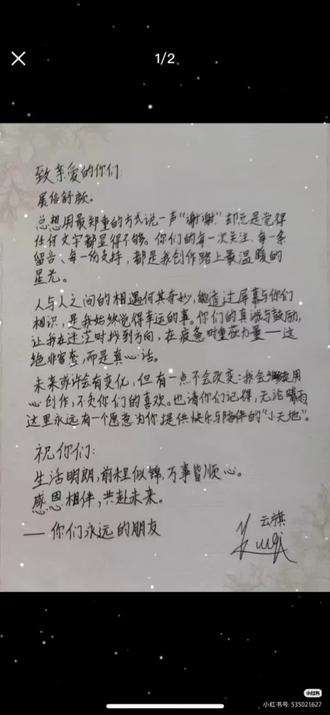 1/2
致亲爱的你们:
展信舒颜。
总想用最郑重的方式说一声“谢谢”却总是觉得
任何文字都显得不够。你们的每一次关注、每一条
留言、每一份支持,都是我创作路上最温暖的
星光。
人与人之间的相遇何其奇妙,能透过屏幕与你们
相识,是我始终觉得幸运的事。你们的真诚与鼓励,
让我在迷茫时找到方向,在疲惫时重获力量——这
绝非客套,而是真心话。
未来或许会有变化,但有一点不会改变:我会用
心创作,不负你们的喜欢。也请你们记得,无论晴雨
这里永远有一个愿意为你提供快乐与陪伴的“小天地”。
祝你们:
生活明朗,前程似锦,万事皆顺心。
感恩相伴,共赴未来。
——你们永远的朋友
云祺
小红书
小红书号: 535021627